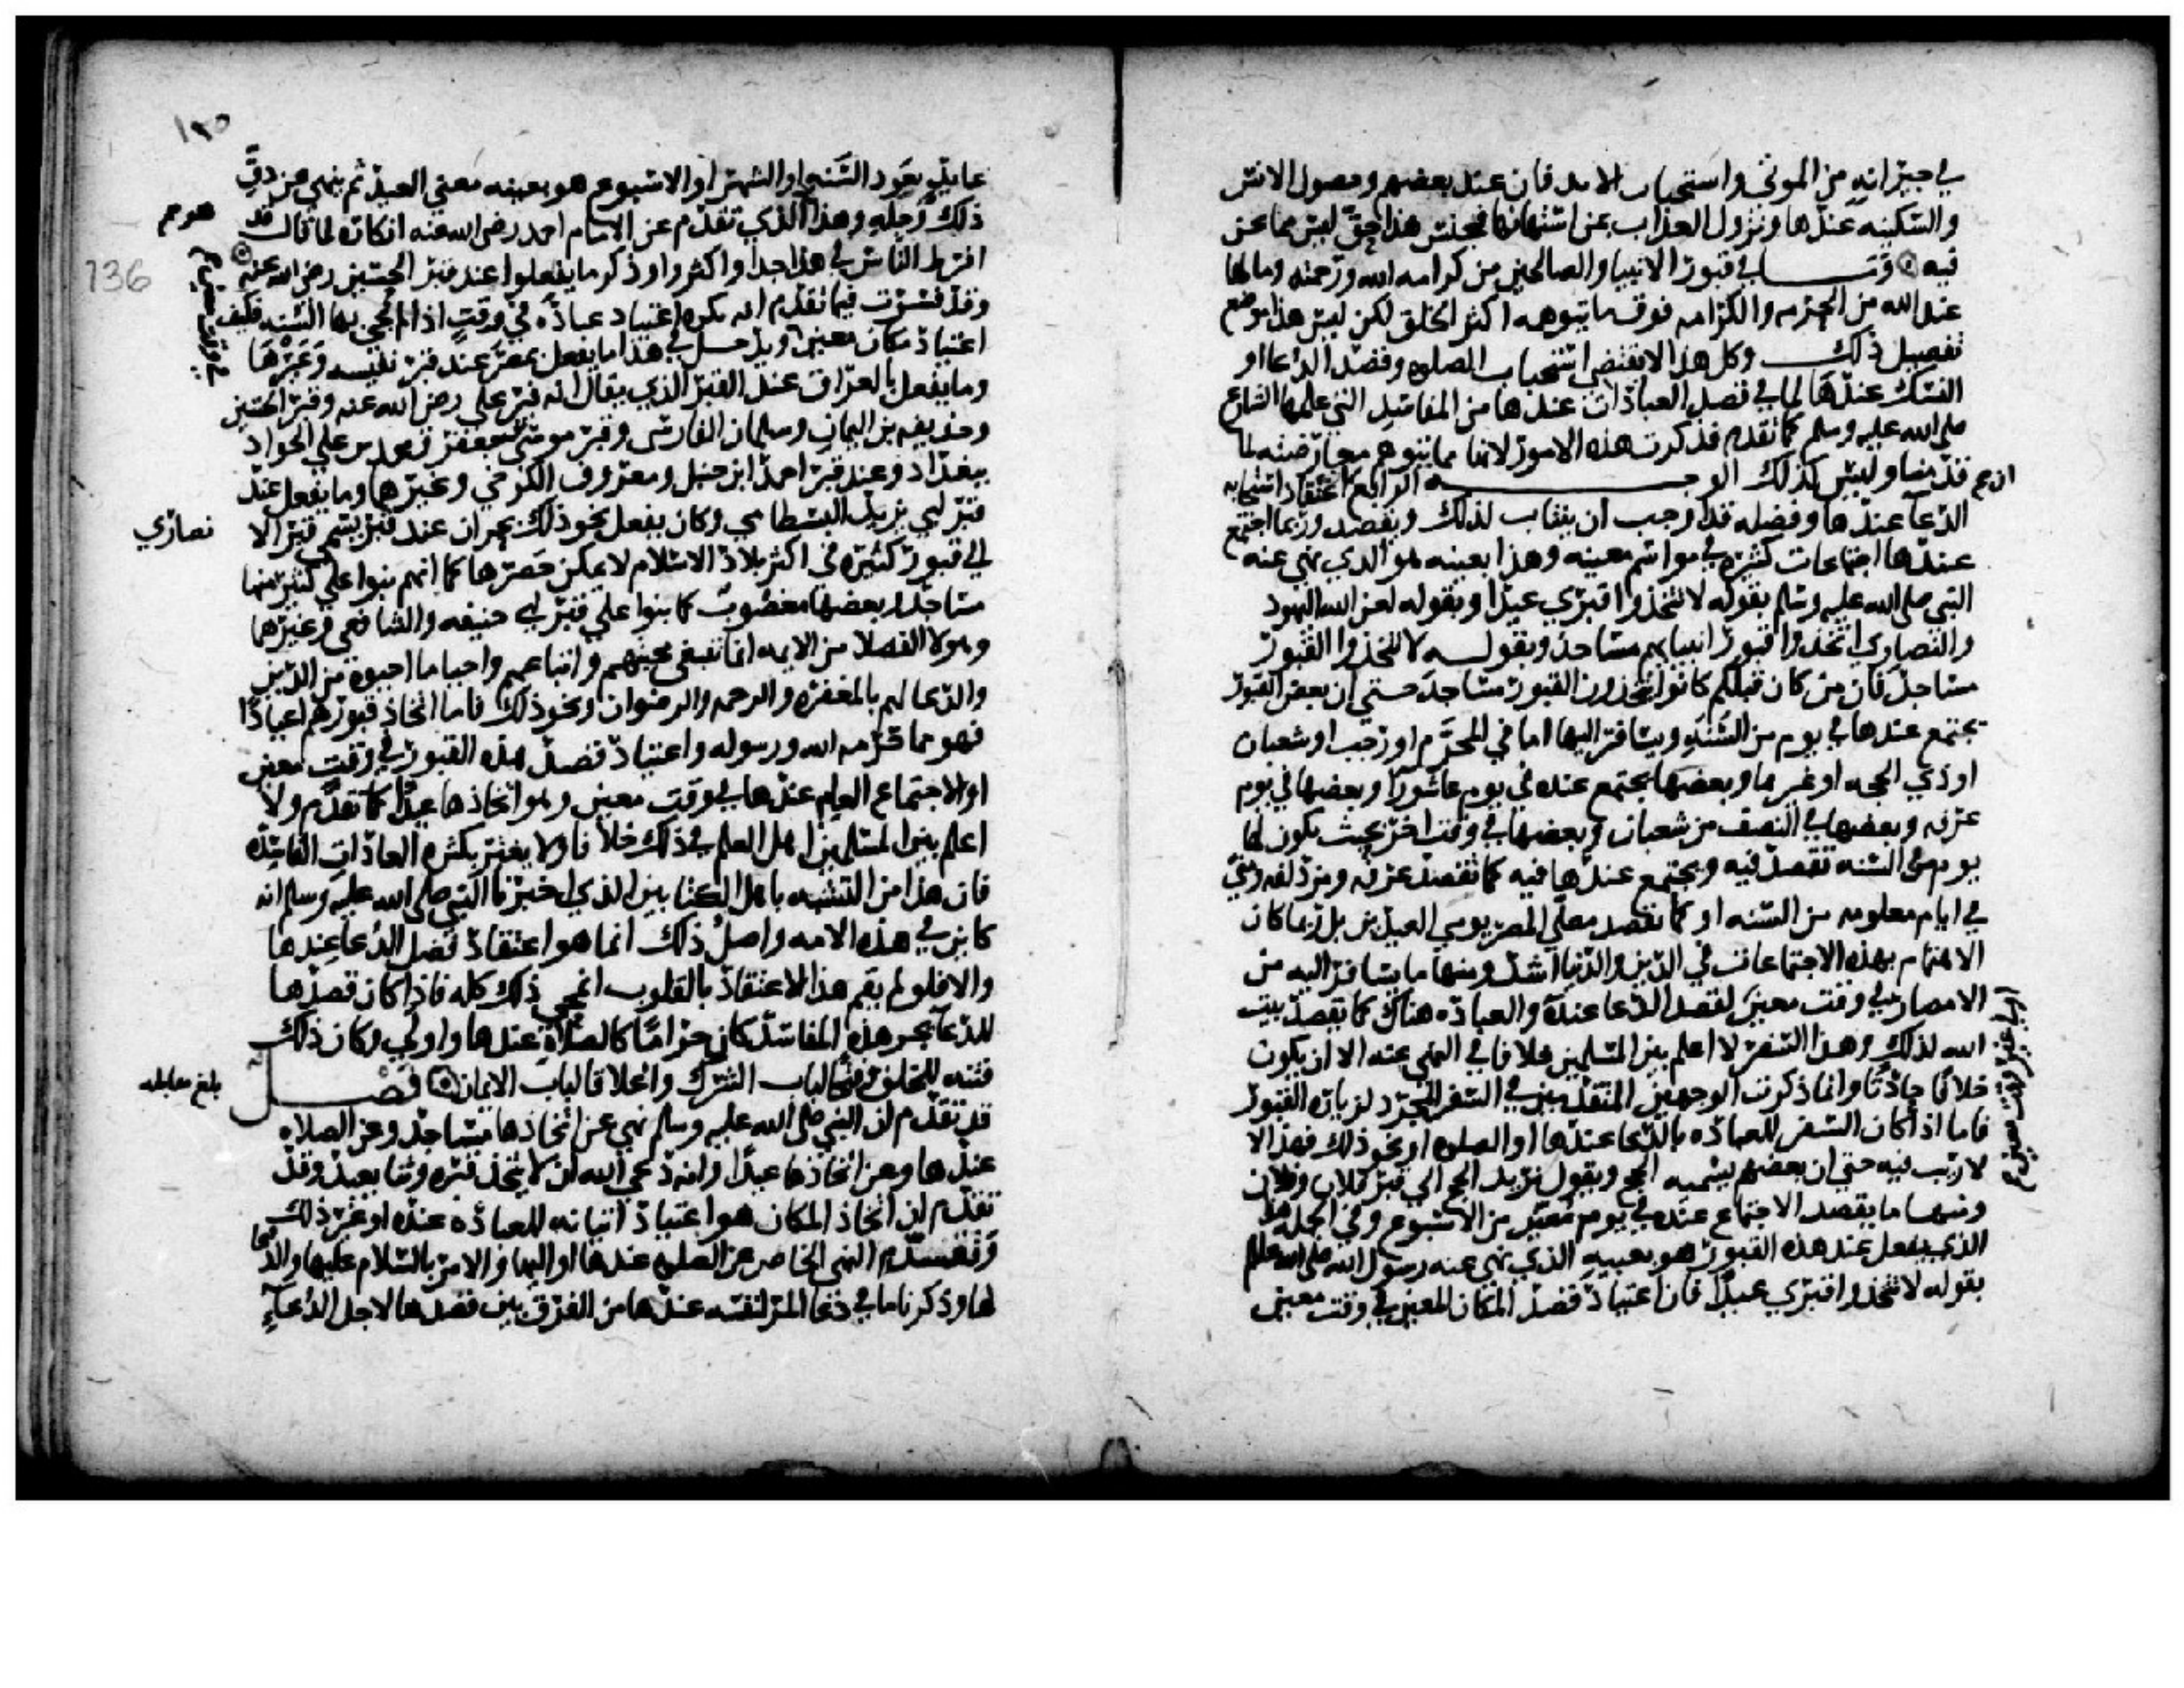 في جيرانه من الموتى واستحباب الاندفان عند بعضهم وحصول الانس
والسكينه عندها ونزول العذاب بمن استهانها فجنس هذا حق ليس مما نحن
فيه وما في قبور الانبيا والصالحين من كرامه الله ورحمته وما لها
عند الله من الحرمه والكرامه فوق ما يتوهمه اكثر الخلق لكن ليس هذا موضع
تفصيل ذلك وكل هذا لا يقتضي استحباب الصلوه وقصد الدعا او
النسك عندها لما في قصد العبادات عندها من المفاسد التي علمها الشارع
صلى الله عليه وسلم كما تقدم فذكرت هذه الامور لانها مما يتوهم معارضته لما
قدمنا وليس كذلك الوجه الرابع ان اعتقاد استجابه
الدعا عندها وفضله قد اوجب ان ينتاب لذلك ويقصد وربما اجتمع
عندها اجتماعات كثيره في مواسم معينه وهذا بعينه هو الذي نهى عنه
النبي صلى الله عليه وسلم بقوله لا تتخذوا قبري عيدا وبقوله لعن الله اليهود
والنصارى اتخذوا قبور انبيايهم مساجد وبقوله لا تتخذوا القبور
مساجد فان من كان قبلكم كانوا يتخذون القبور مساجد حتى ان بعض القبور
يجتمع عندها في يوم من السنه ويسافر اليها اما في المحرم او رجب او شعبان
او ذي الحجه او غيرها وبعضها يجتمع عنده في يوم عاشورا وبعضها في يوم
عرفه وبعضها في النصف من شعبان وبعضها في وقت اخر بحيث يكون لها
يوم من السنه تقصد فيه ويجتمع عندها فيه كما تقصد عرفه ومزدلفه ومنى
في ايام معلومه من السنه او كما يقصد مصلى المصر يومي العيدين بل ربما كان
الاهتمام بهذه الاجتماعات في الدين والدنيا اشد ومنها ما يسافر اليه من
الامصار في وقت معين لقصد الدعا عنده والعباده هناك كما يقصد بيت
الله لذلك وهذا السفر لا اعلم بين المسلمين خلافا في النهي عنه الا ان يكون
خلافا حادثا وانما ذكرت الوجهين المتقدمين في السفر المجرد لزياره القبور
فاما اذا كان السفر للعباده بالدعا عندها او الصلوه او نحو ذلك فهذا لا
لا ريب فيه حتى ان بعضهم يسميه الحج ويقول نريد الحج الى قبر فلان وفلان
ومنها ما يقصد الاجتماع عنده في يوم معين من الاسبوع وفي الجمله هذا
الذي يفعل عند هذه القبور هو بعينه الذي نهى عنه رسول الله صلى الله عليه وسلم
بقوله لا تتخذوا قبري عيدا فان اعتياد قصد المكان المعين في وقت معين
١٣٥
136
عايد بعود السنه او الشهر او الاسبوع هو بعينه معنى العيد ثم ينهى عن دق
ذلك وجله وهذا الذي تقدم عن الامام احمد رضي الله عنه انكاره لما قال قد
افرط الناس في هذا جدا واكثروا وذكر ما يفعلوا عند قبر الحسين رضي الله عنه
وقد ذكرت فيما تقدم انه يكره اعتياد عباده في وقت اذا لم تجي بها السنه فكيف
اعتياد مكان معين ويدخل في هذا ما يفعل بمصر عند قبر نفيسه وغيرها
وما يفعل بالعراق عند القبر الذي يقال انه قبر علي رضي الله عنه وقبر الحسين
وحذيفه بن اليمان وسلمان الفارسي وقبر موسى بن جعفر ومحمد بن علي الجواد
ببغداد وعند قبر احمد ابن حنبل ومعروف الكرخي وغيرها وما يفعل عند
قبر ابي يزيد البسطامي وكان يفعل نحو ذلك بحران عند قبر يسمى قبر الا
نصاري
الى قبور كثيره في اكثر بلاد الاسلام لا يمكن حصرها كما انهم بنوا على كثير منها
مساجد وبعضها مغصوب كما بنوا على قبر ابي حنيفه والشافعي وغيرهما
وهولا الفضلا من الايمه انما ينبغي محبتهم واتباعهم واحيا ما احيوه من الدين
والدعا لهم بالمغفره والرحمه والرضوان ونحو ذلك فاما اتخاذ قبورهم اعيادا
فهو مما حرمه الله ورسوله واعتياد قصد هذه القبور في وقت معين
او الاجتماع العام عندها في وقت معين وهو اتخاذها عيدا كما تقدم ولا
اعلم بين المسلمين اهل العلم في ذلك خلافا ولا يغتر بكثره العادات الفاسده
فان هذا من التشبه باهل الكتابين الذي اخبرنا النبي صلى الله عليه وسلم انه
كاين في هذه الامه واصل ذلك انما هو اعتقاد فضل الدعا عندها
والا فلو لم يقم هذا الاعتقاد بالقلوب انمحى ذلك كله فاذا كان قصدها
للدعا يجر هذه المفاسد كان حراما كالصلاة عندها واولى وكان ذلك
فتنه للخلق وفتحا لباب الشرك واغلاقا لباب الايمان فصل
بلغ مقابله
قد تقدم ان النبي صلى الله عليه وسلم نهى عن اتخاذها مساجد وعن الصلاه
عندها وعن اتخاذها عيدا وانه دعى الله ان لا يتخذ قبره وثنا يعبد وقد
تقدم ان اتخاذ المكان هو اعتياد اتيانه للعباده عنده او غير ذلك
وتقدم النهي الخاص عن الصلوه عندها او اليها والامر بالسلام عليها والدعا
لها وذكرنا ما في دعا المر لنفسه عندها من الفرق بين قصدها لاجل الدعا